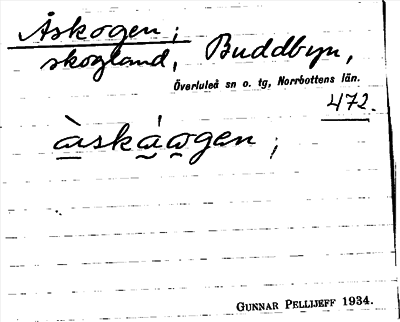 Åskogen;
skogland, Buddbyn,
Överluleå sn o. tg, Norrbottens län.
472.
GUNNAR PELLIJEFF 1934.